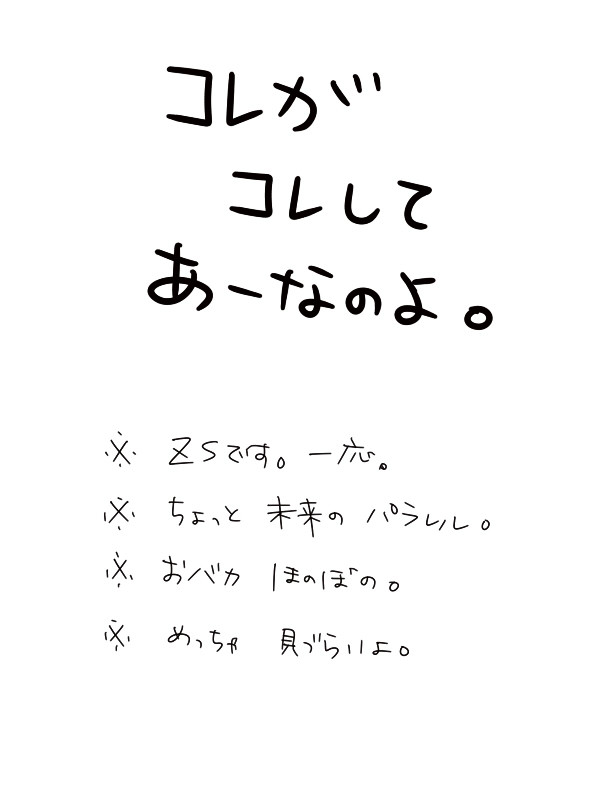 コレが
コレして
あーなのよ。
※ ZSです。一応。
※ ちょっと 未来の パラレル。
※ おバカ ほのぼの。
※ めっちゃ 見づらいよ。